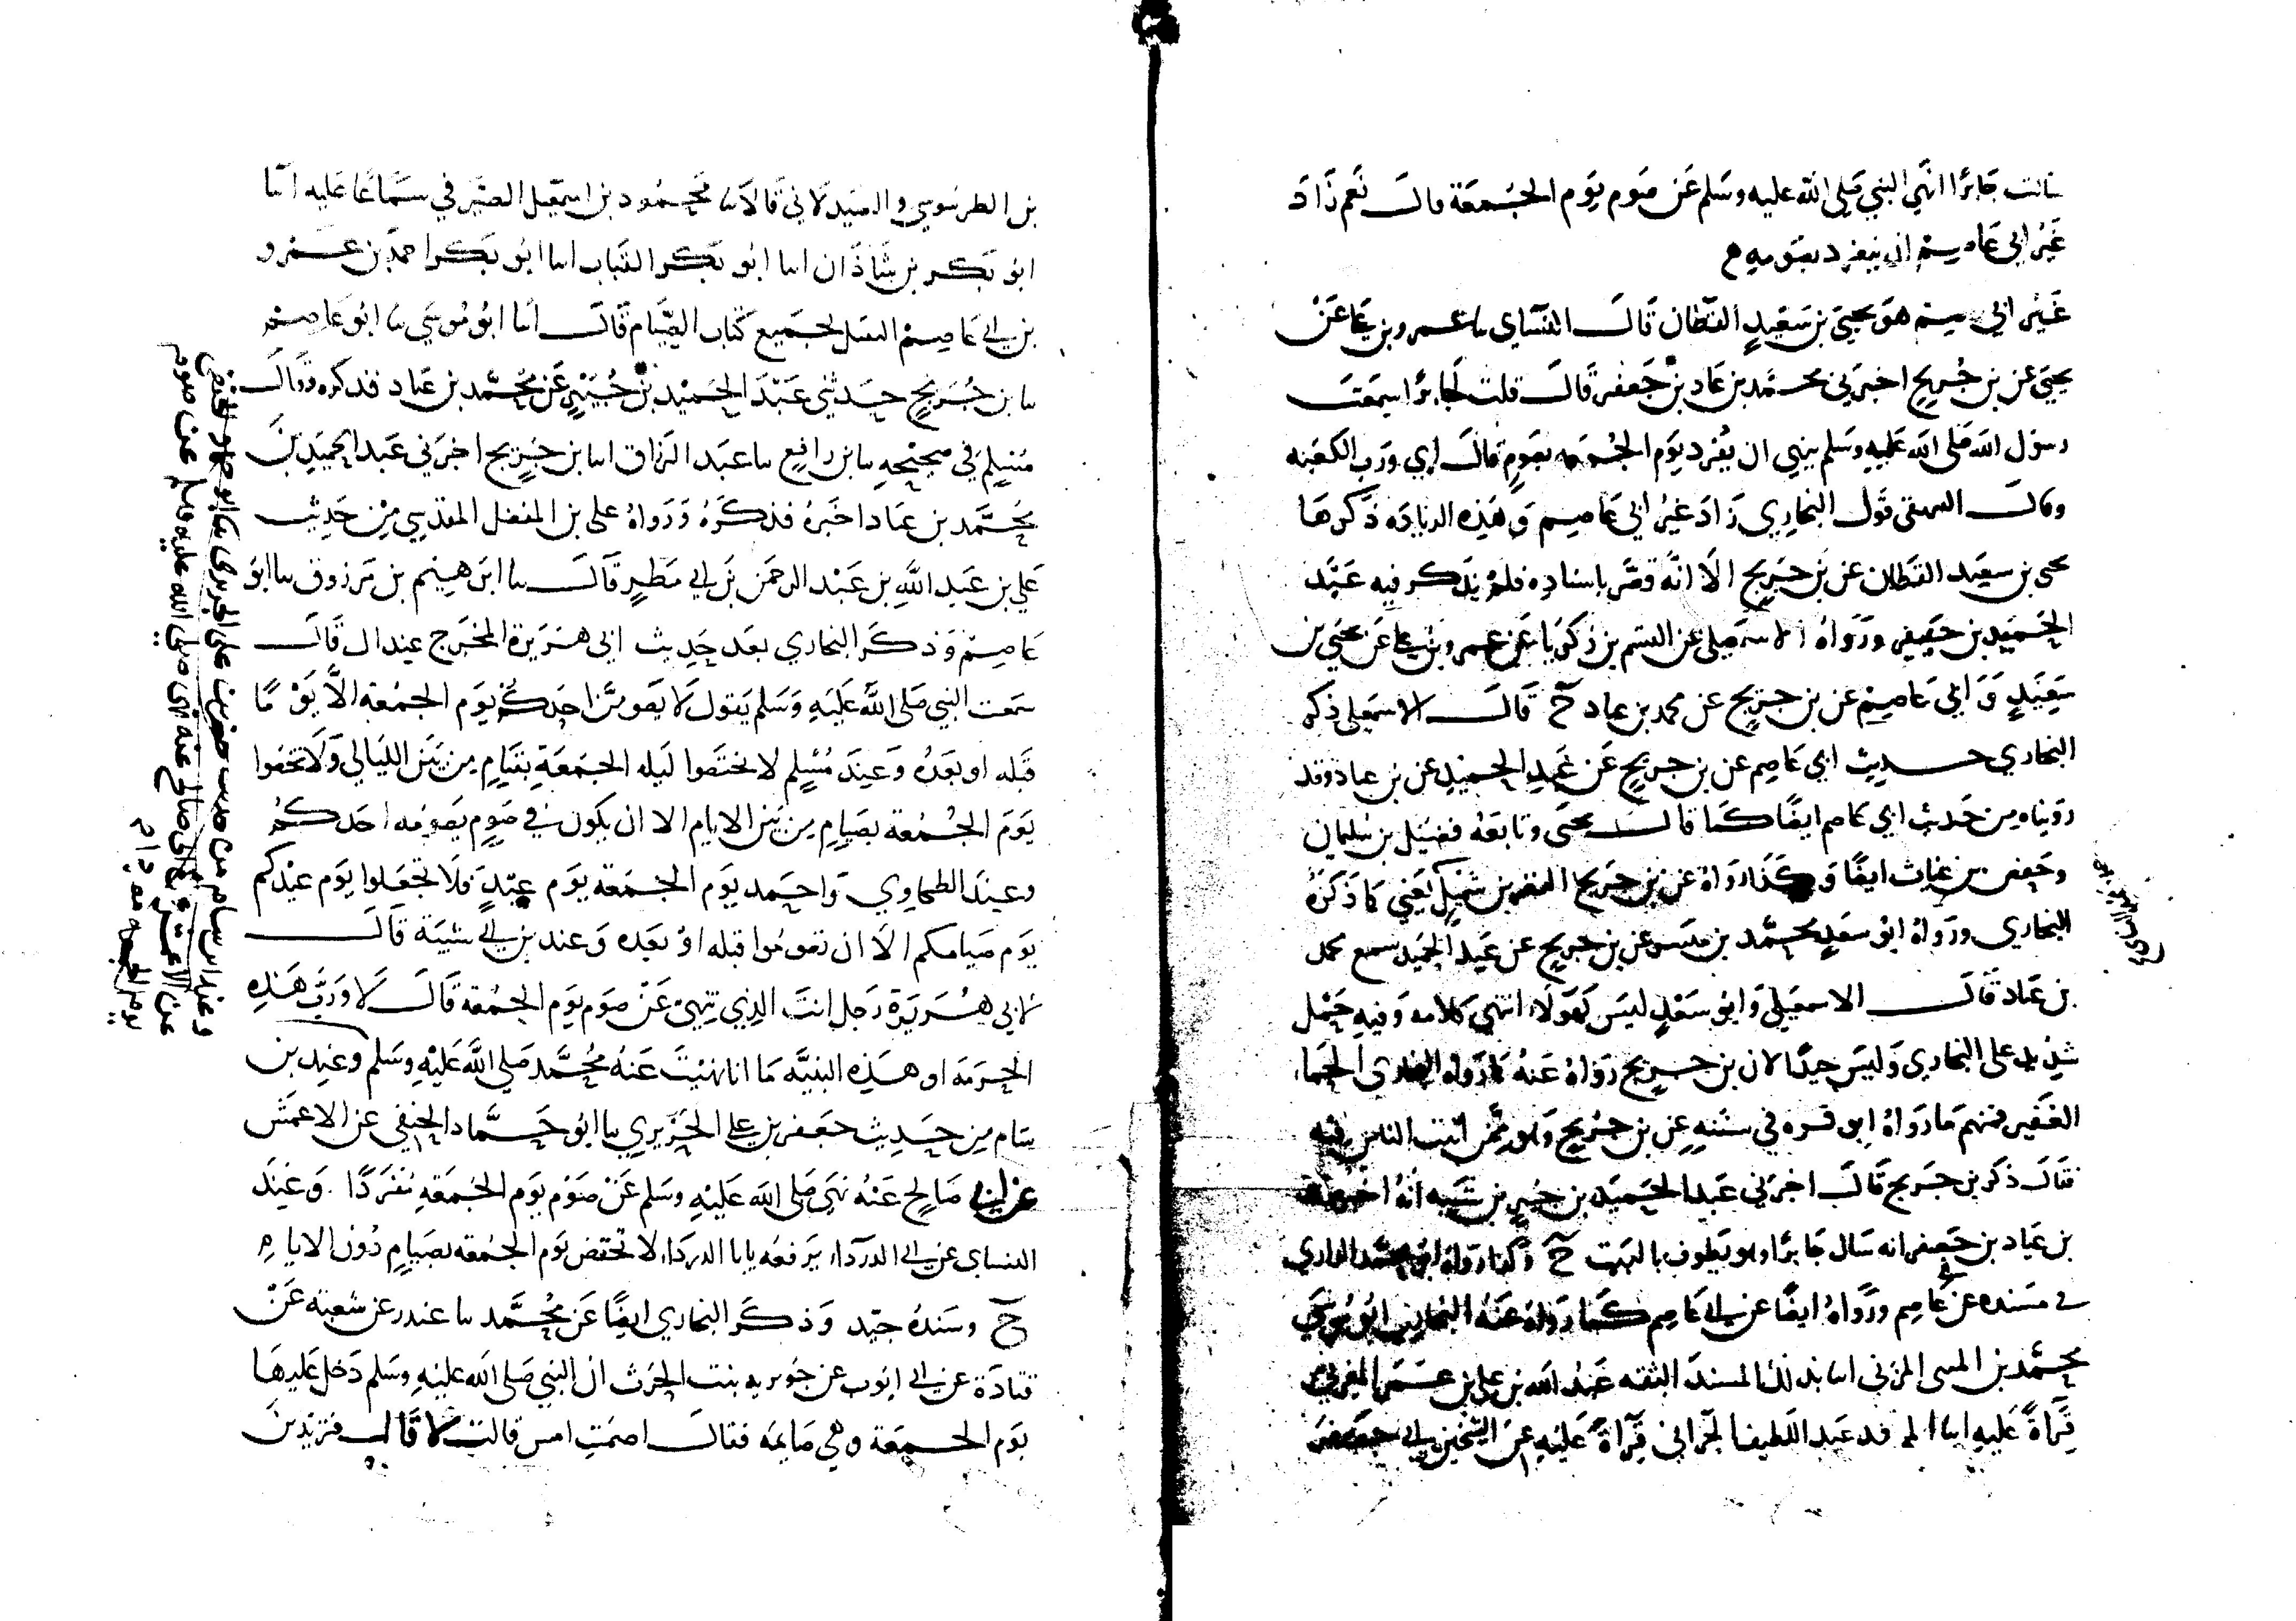 سالت جابرا انهي النبي صلى الله عليه وسلم عن صوم يوم الجمعة قال نعم زاد
غير ابي عاصم ان ينفرد بصومه
غير ابي عاصم هو يحيى بن سعيد القطان قال النسائي سا عمرو بن علي عن
يحيى عن بن جريج اخبرني محمد بن عباد بن جعفر قال قلت لجابر اسمعت
رسول الله صلى الله عليه وسلم ينهي ان يفرد يوم الجمعه بصوم قال اي ورب الكعبه
وقال البيهقي قول البخاري زاد غير ابي عاصم وهذه الزياده ذكرها
يحيى بن سعيد القطان عن بن جريج الا انه قصر باسناده فلم يذكر فيه عبد
الحميد بن جعفر ورواه الاسمعيلي عن القسم بن زكريا عن عمرو بن علي عن يحيى بن
سعيد وابي عاصم عن بن جريج عن محمد بن عباد ح قال الاسمعيلي ذكر
البخاري حديث ابي عاصم عن بن جريج عن عبد الحميد عن بن عباد وقد
رويناه من حديث ابي عاصم ايضا كما قال يحيى وتابعه فضيل بن سليمان
وحفص بن غياث ايضا وكذا رواه عن بن جريج النضر بن شميل يعني كما ذكره
البخاري ورواه ابو سعد محمد بن ميسر عن بن جريج عن عبد الحميد سمع محمد
بن عباد قال الاسمعيلي وابو سعد ليس كهولاء انتهى كلامه وفيه حمل
شديد على البخاري وليس جيدا لان بن جريج رواه عنه كما رواه البخاري الجما
الغفير فمنهم ما رواه ابو قره في سننه عن بن جريج وهو ممن اثبت الناس فيه
فقال ذكر بن جريج قال اخبرني عبد الحميد بن جبير بن شيبه انه اخبره
بن عباد بن جعفر انه سال جابرا وهو يطوف بالبيت ح وكذا رواه ابو محمد الدارمي
في مسنده عن عاصم ورواه ايضا عن ابي عاصم كما رواه عنه البخاري ابو موسى
محمد بن المثنى الزمني انبا بذلك المسند الثقه عبد الله بن علي بن عمر المغربي
قراة عليه انبا عبد اللطيف الحراني قراة عليه عن الشيخين ابي جعفر
بن الطرسوسي والصيدلاني قالا سا محمود بن اسمعيل الصيرفي سماعا عليه انبا
ابو بكر بن شاذان انبا ابو بكر القباب انبا ابو بكر احمد بن عمرو
بن ابي عاصم النبيل لجميع كتاب الصيام قال انبا ابو موسى سا ابو عاصم
سا بن جريج حدثني عبد الحميد بن جبير عن محمد بن عباد فذكره وقال
مسلم في صحيحه سا بن رافع سا عبد الرزاق انبا بن جريج اخبرني عبد الحميد بن
محمد بن عباد اخبره فذكره ورواه علي بن المفضل المقدسي من حديث
علي بن عبد الله بن عبد الرحمن بن ابي مطير قال سا ابرهيم بن مرزوق سا ابو
عاصم وذكر البخاري بعد حديث ابي هريرة المخرج عند ال قال
سمعت النبي صلى الله عليه وسلم يقول لا يصومن احدكم يوم الجمعة الا يوما
قبله او بعده وعند مسلم لا تختصوا ليله الجمعة بقيام من بين الليالي ولا تخصوا
يوم الجمعة بصيام من بين الايام الا ان يكون في صوم يصومه احدكم
وعند الطحاوي واحمد يوم الجمعة يوم عيد فلا تجعلوا يوم عيدكم
يوم صيامكم الا ان تصوموا قبله او بعده وعند بن ابي شيبة قال
لابي هريرة رجل انت الذي تنهى عن صوم يوم الجمعة قال لا ورب هذه
الحرمة او هذه البنية ما انا نهيت عنه محمد صلى الله عليه وسلم وعند بن
سام من حديث جعفر بن علي الجريري سا ابو حماد الحنفي عن الاعمش
عن ابي صالح عنه نهى صلى الله عليه وسلم عن صوم يوم الجمعة مفردا وعند
النساي عن ابي الدرداء يرفعه يا ابا الدرداء لا تختص يوم الجمعة بصيام دون الايام
ح وسنده جيد وذكر البخاري ايضا عن محمد سا غندر عن شعبة عن
قتادة عن ابي ايوب عن جويريه بنت الحرث ان النبي صلى الله عليه وسلم دخل عليها
يوم الجمعة وهي صايمه فقال اصمت امس قالت لا قال فتريدين
وعند ابن سام من حديث جعفر بن علي الجريري سا ابو حماد الحنفي
عن الاعمش عن ابي صالح عنه نهى صلى الله عليه وسلم عن صوم
يوم الجمعة